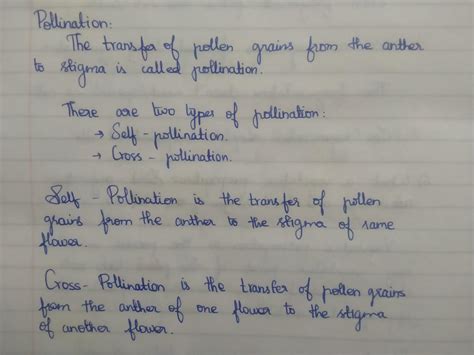 Pollination:
The transfer of pollen grains from the anther
to stigma is called pollination.
There are two types of pollination:
→ Self - pollination.
→ Cross - pollination.
Self - Pollination is the transfer of pollen
grains from the anther to the stigma of same
flower.
Cross - Pollination is the transfer of pollen grains
from the anther of one flower to the stigma
of another flower.